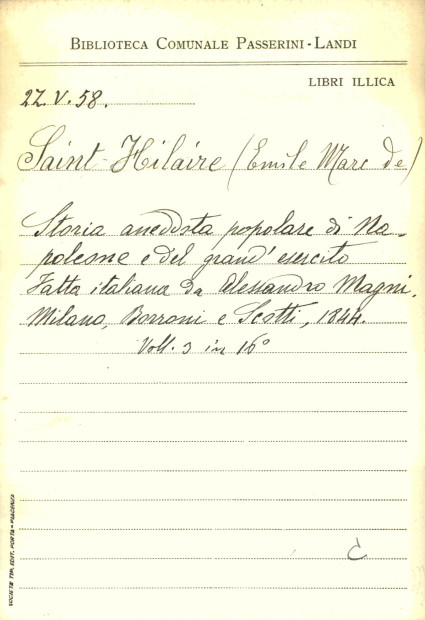 BIBLIOTECA COMUNALE PASSERINI-LANDI
LIBRI ILLICA
2Z.V.58.
Saint-Hilaire (Emile Marc de)
Storia aneddota popolare di Na-
poleone e del grand' esercito
Fatta italiana da Alessandro Magni.
Milano, Borroni e Scotti, 1844.
Voll. 3 in 16°
C